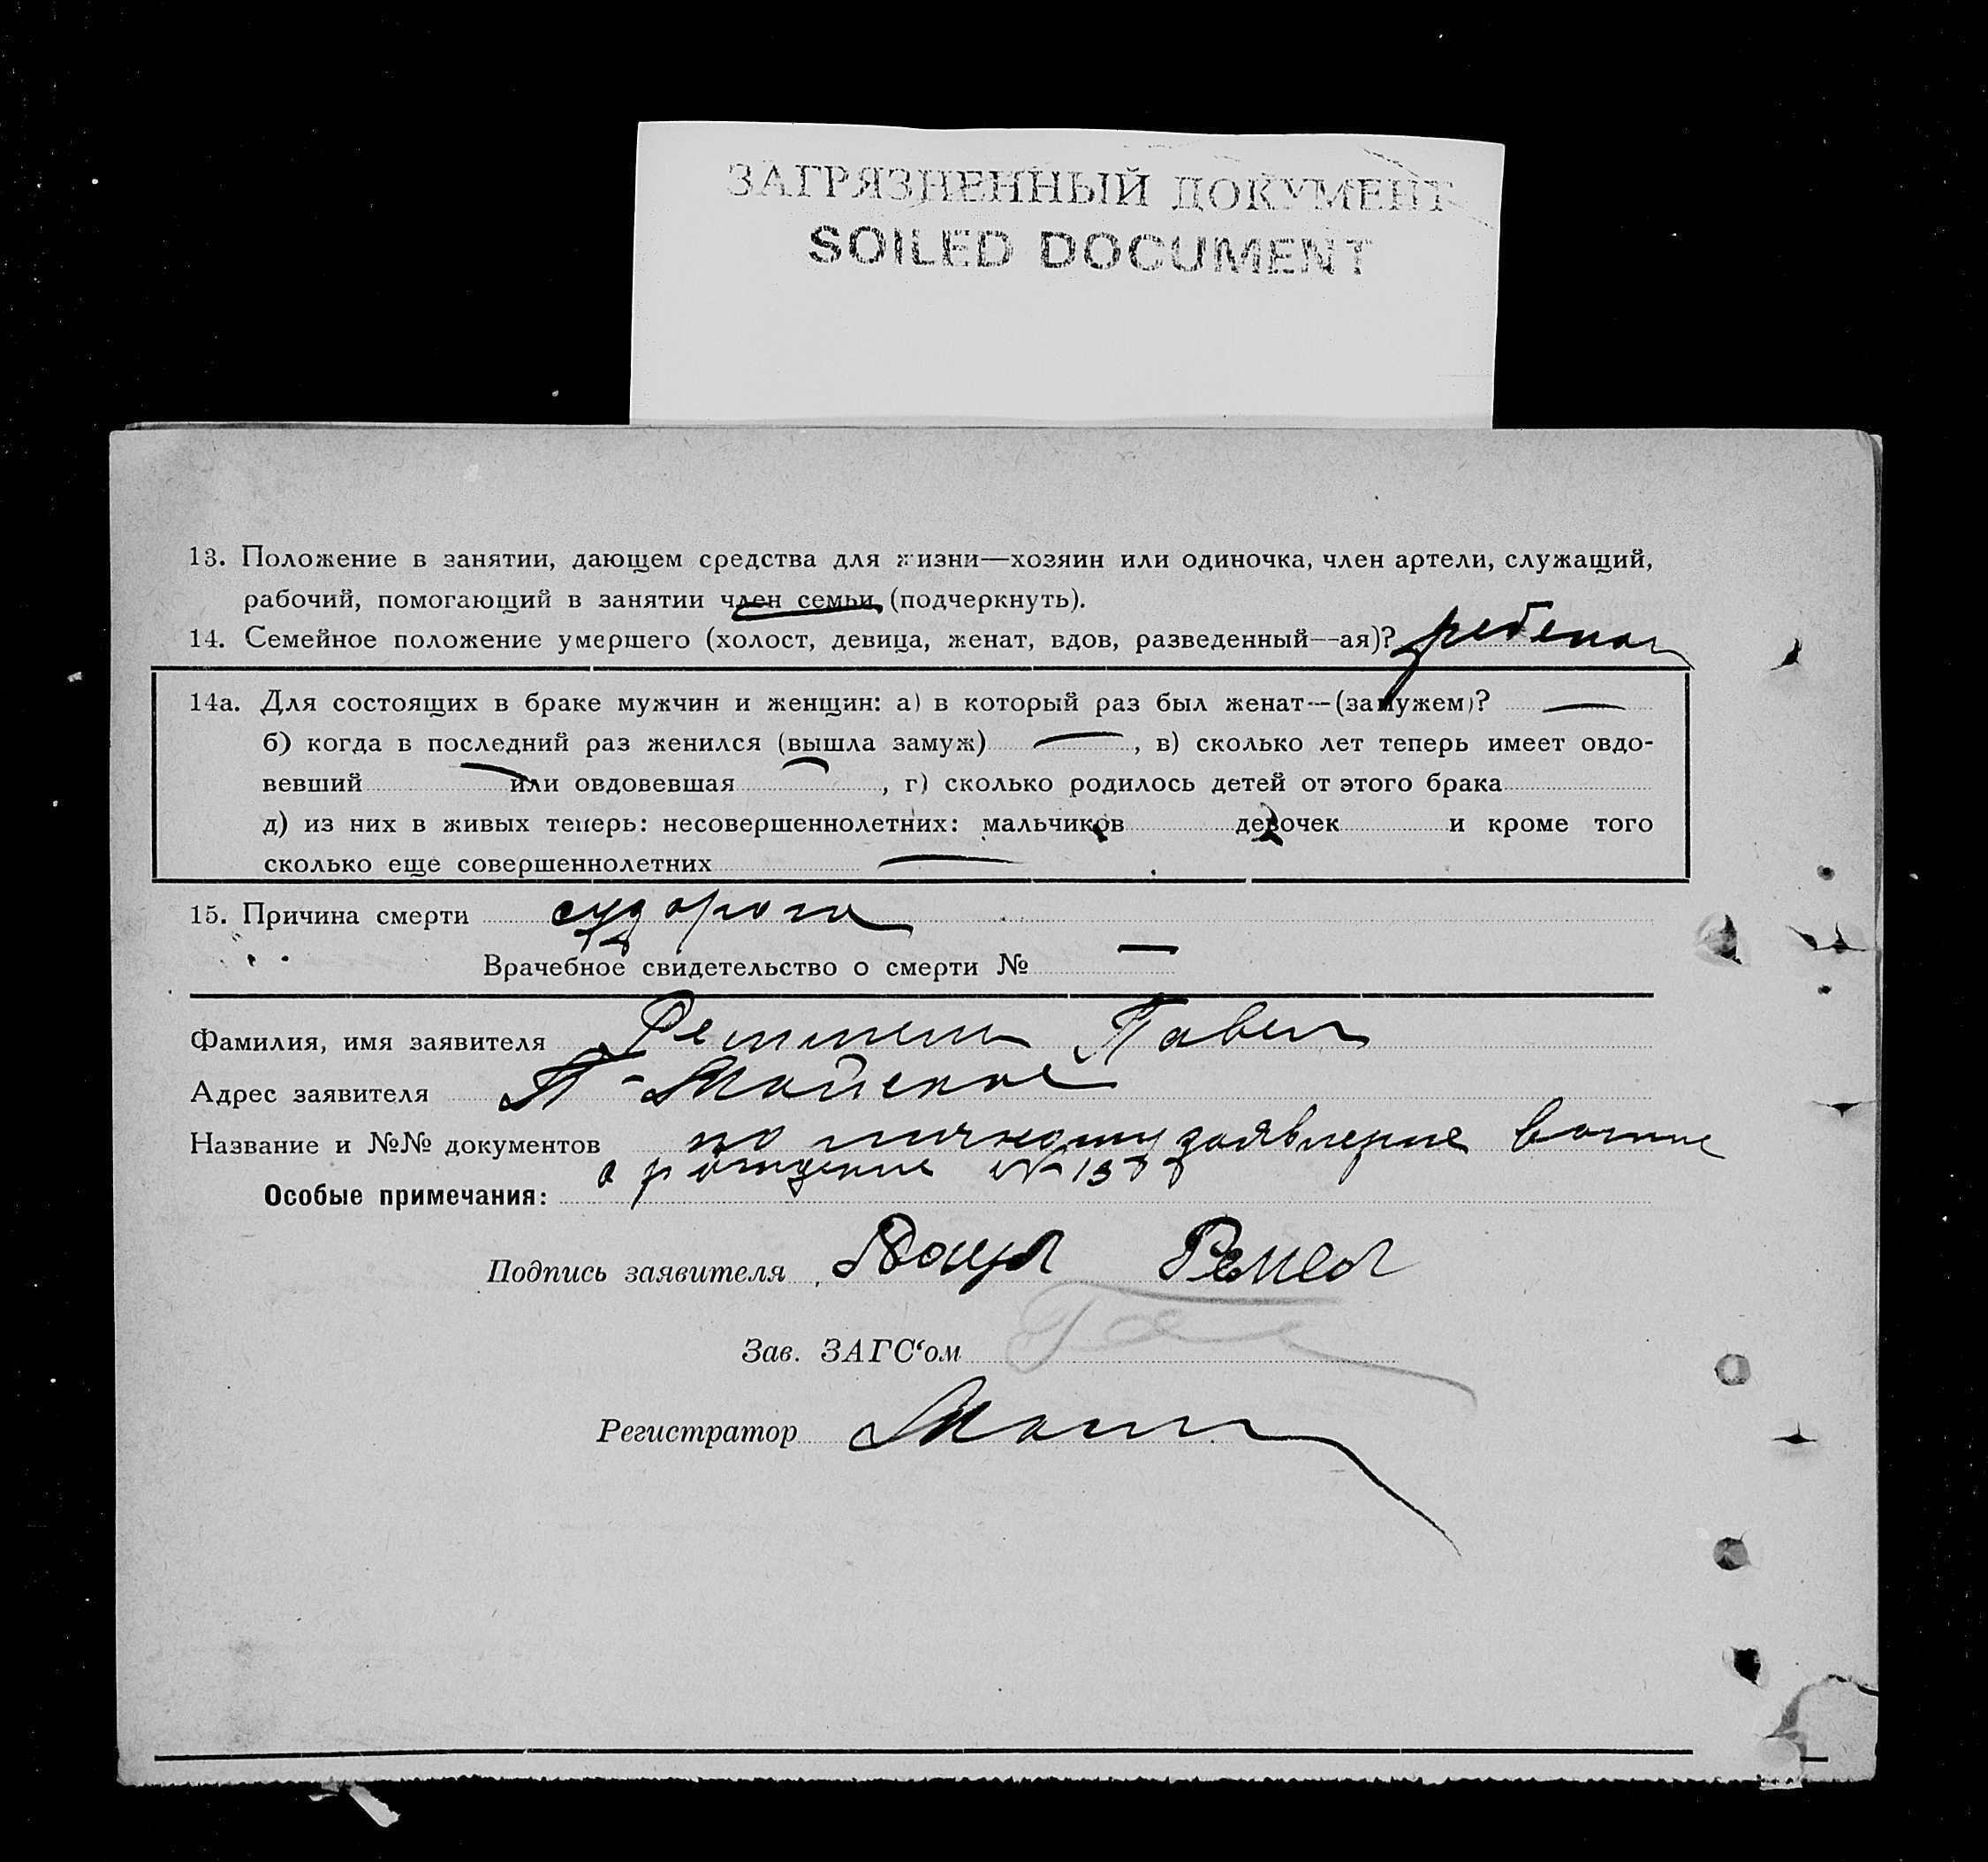 ЗАГРЯЗНЕННЫЙ ДОКУМЕНТ
SOILED DOCUMENT
13. Положение в занятии, дающем средства для жизни—хозяин или одиночка, член артели, служащий,
рабочий, помогающий в занятии член семьи (подчеркнуть).
14. Семейное положение умершего (холост, девица, женат, вдов, разведенный—ая)? ребенок
14а. Для состоящих в браке мужчин и женщин: а) в который раз был женат—(замужем)? —
б) когда в последний раз женился (вышла замуж) —, в) сколько лет теперь имеет овдо-
вевший — или овдовевшая —, г) сколько родилось детей от этого брака
д) из них в живых теперь: несовершеннолетних: мальчиков девочек и кроме того
сколько еще совершеннолетних —
15. Причина смерти судорога
Врачебное свидетельство о смерти № —
Фамилия, имя заявителя Павел
Адрес заявителя П-Майское
Название и №№ документов по личному заявление
о рождение №
Особые примечания:
Подпись заявителя
Зав. ЗАГС‘ом
Регистратор